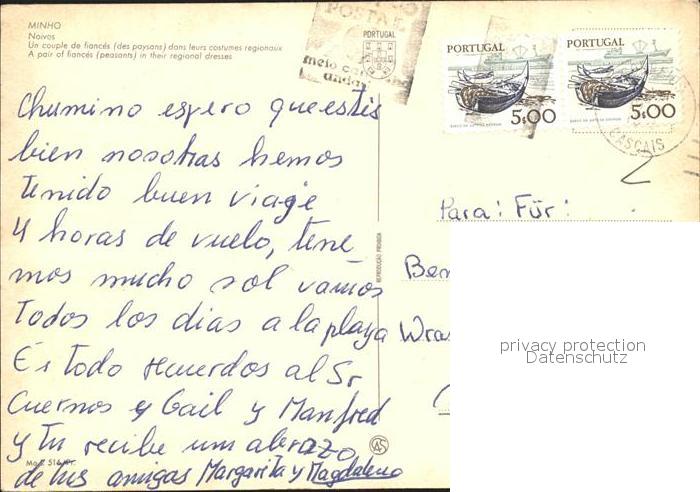 MINHO
Noivos
Un couple de fiancés (des paysans) dans leurs costumes regionaux
A pair of fiancés (peasants) in their regional dresses
POSTAL
PORTUGAL
meio
andar
PORTUGAL
5$00
PORTUGAL
5$00
CASCAIS
Chumino espero que estís
bien nosotras hemos
tenido buen viage
4 horas de vuelo, tene_
mos mucho sol vamos
todos los dias a la playa
Es todo recuerdos al Sr
Cuernos y Gail y Manfred
y tu recibe um abrazo
de tus amigas Margarita y Magdalena
REPRODUÇÃO PROIBIDA
Para: Für:
Ben
Wra
privacy protection
Datenschutz